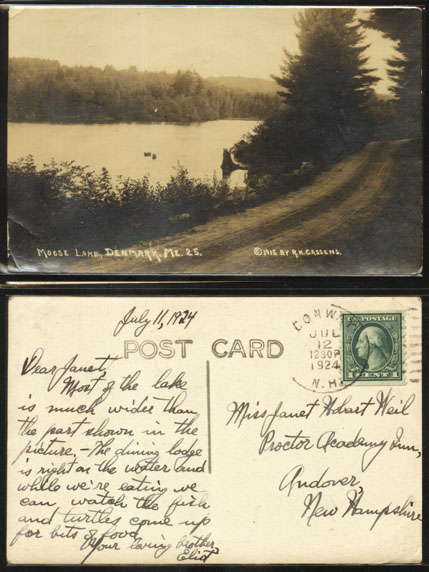 MOOSE LAKE, DENMARK, ME. 25. ©1915 BY R.H. CASSENS.
July 11, 1924
POST CARD
CONWAY
JUL
12
1230P
1924
N.H.
U.S. POSTAGE
1 CENT 1
Dear Janet,
Most of the lake
is much wider than
the part shown in the
picture, - the dining lodge
is right on the water and
while we're eating we
can watch the fish
and turtles come up
for bits of food.
Your loving brother
Eliot
Miss Janet Hobart Weil
Proctor Academy Inn,
Andover
New Hampshire